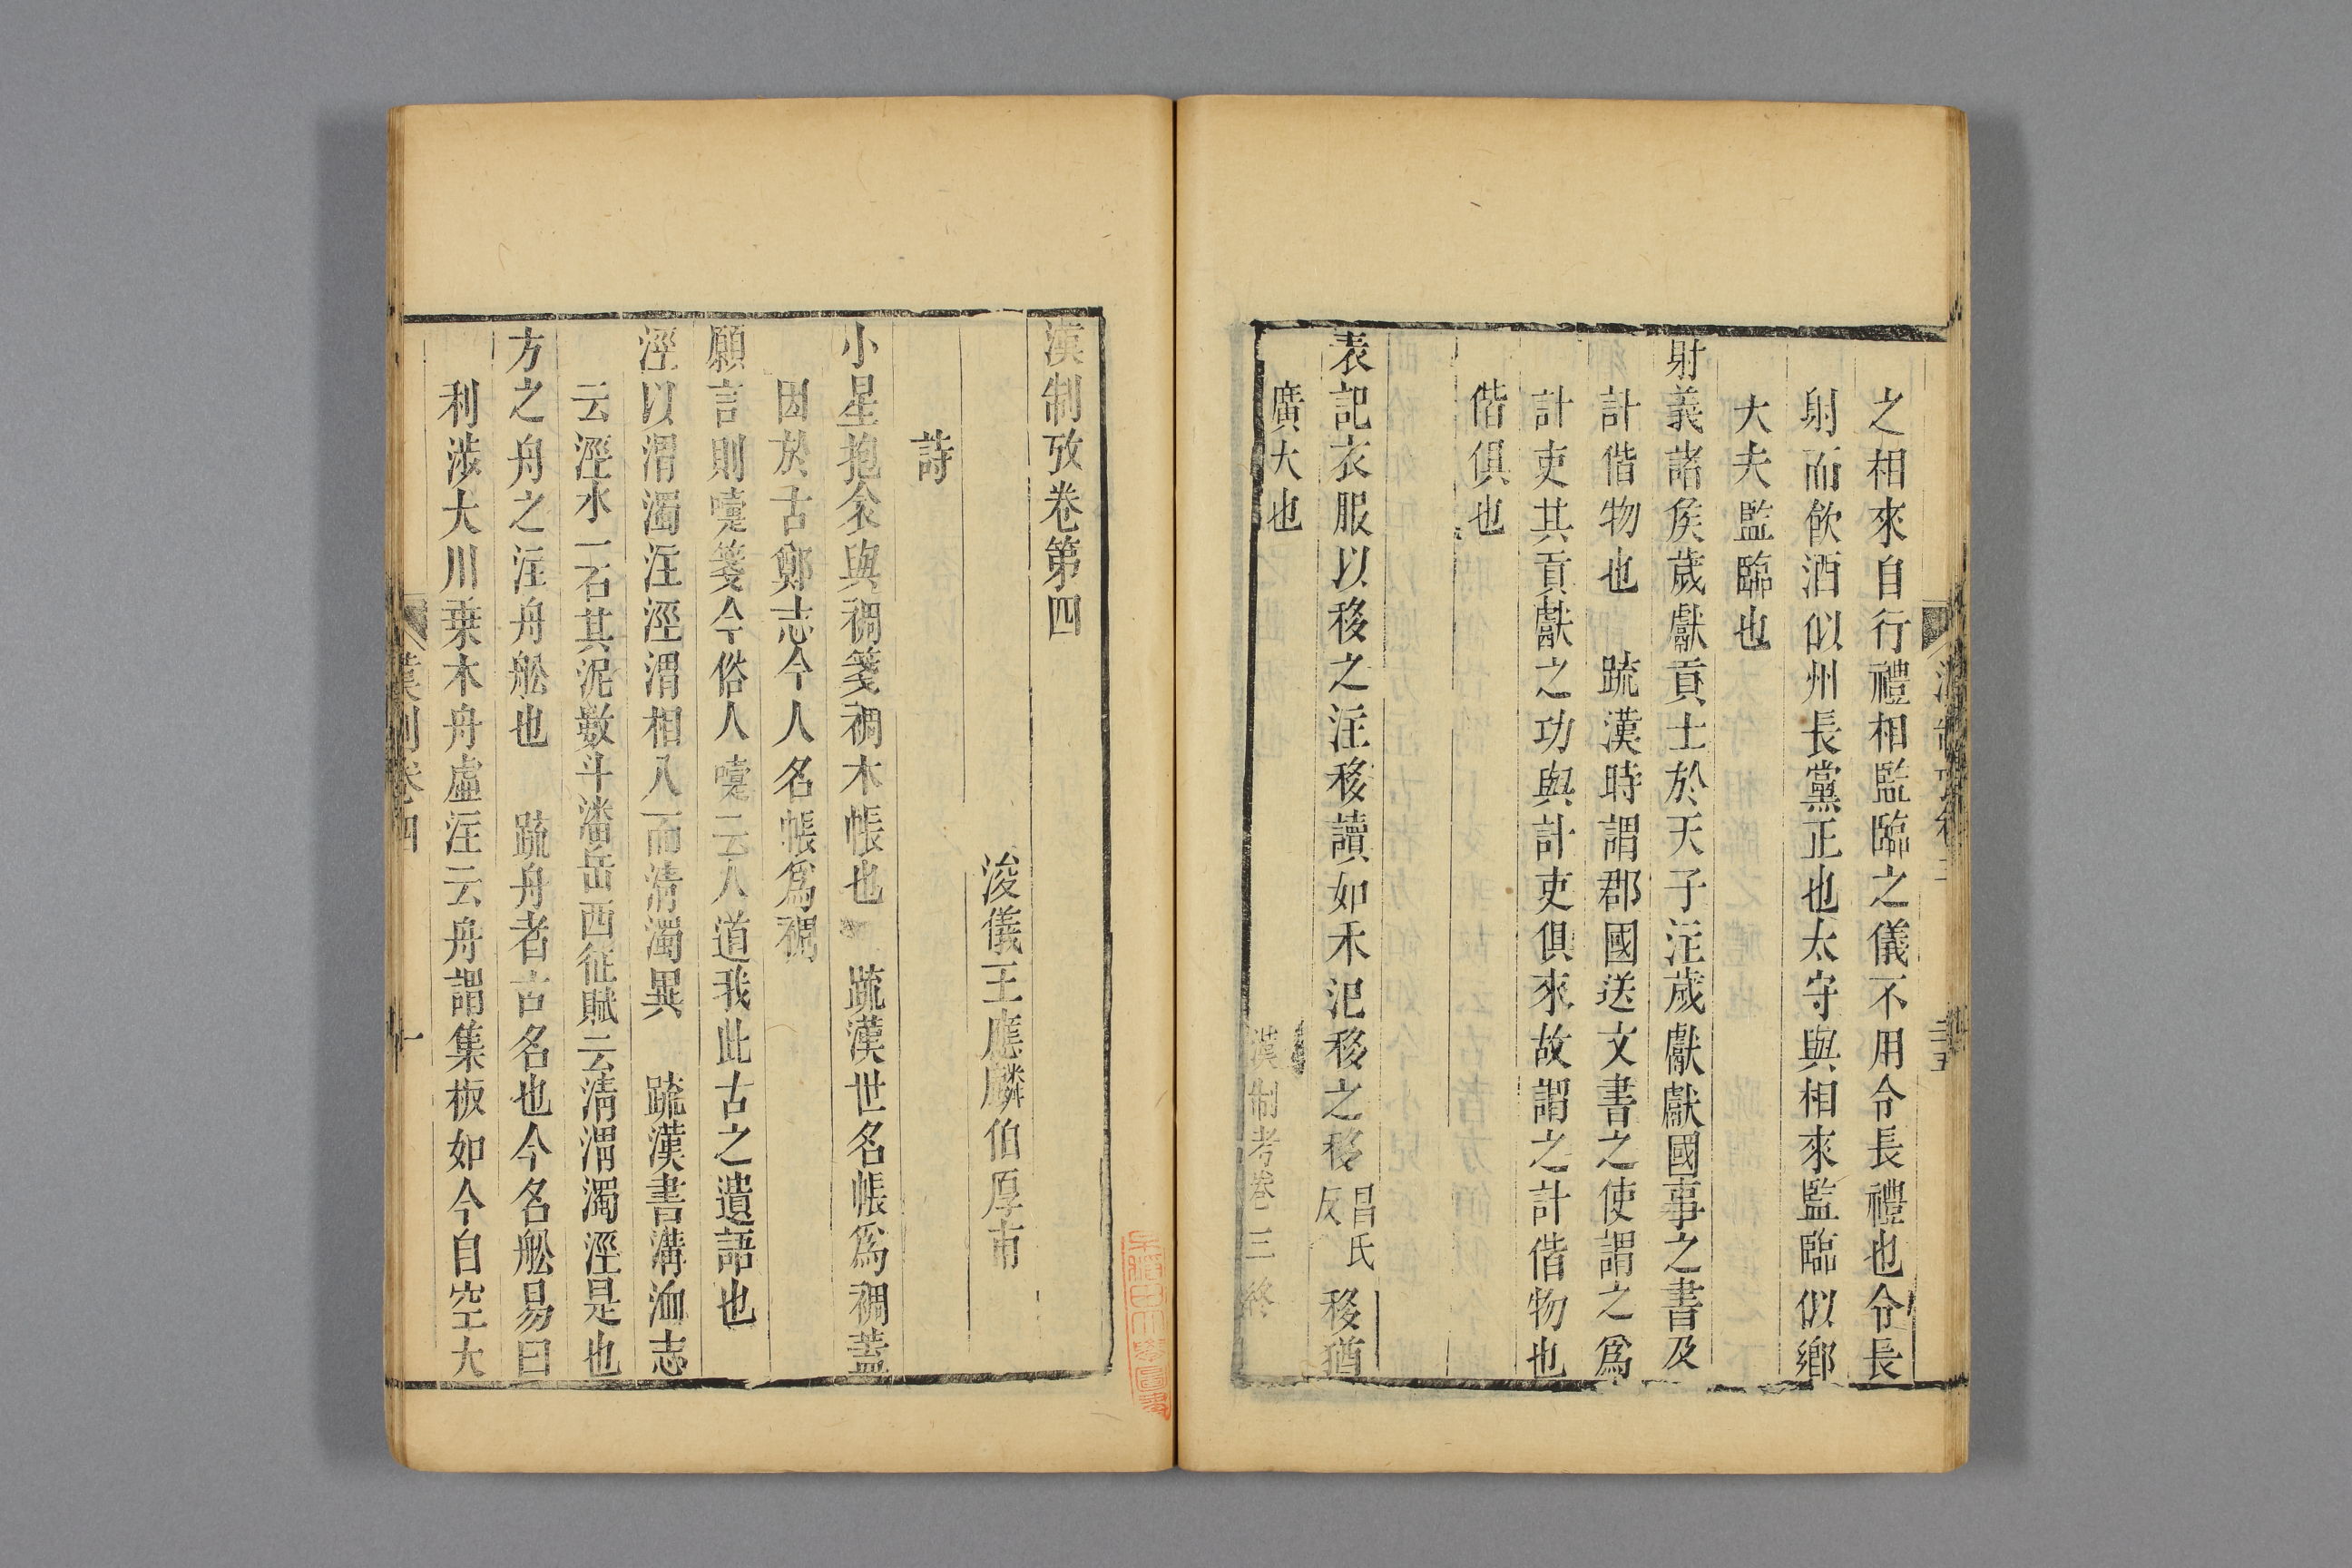 之相來自行禮相監臨之儀不用令長禮也令長
射而飲酒似州長黨正也太守與相來監臨似鄉
大夫監臨也
射義諸矦歲獻貢士於天子注歲獻獻國事之書及
計偕物也　疏漢時謂郡國送文書之使謂之爲
計吏其貢獻之功與計吏俱來故謂之計偕物也
偕俱也
表記衣服以移之注移讀如禾汜移之移昌氏反移猶
廣大也
漢制考卷三終
漢制攷卷第四
浚儀王應麟伯厚甫
詩
小星抱衾與裯箋裯木帳也　疏漢世名帳爲裯蓋
因於古鄭志今人名帳爲裯
願言則嚔箋今俗人嚔云人道我此古之遺語也
涇以渭濁注涇渭相入而淸濁異　疏漢書溝洫志
云涇水一石其泥數斗潘岳西征賦云淸渭濁涇是也
方之舟之注舟舩也　疏舟者古名也今名舩易曰
利涉大川乗木舟虛注云舟謂集板如今自空大